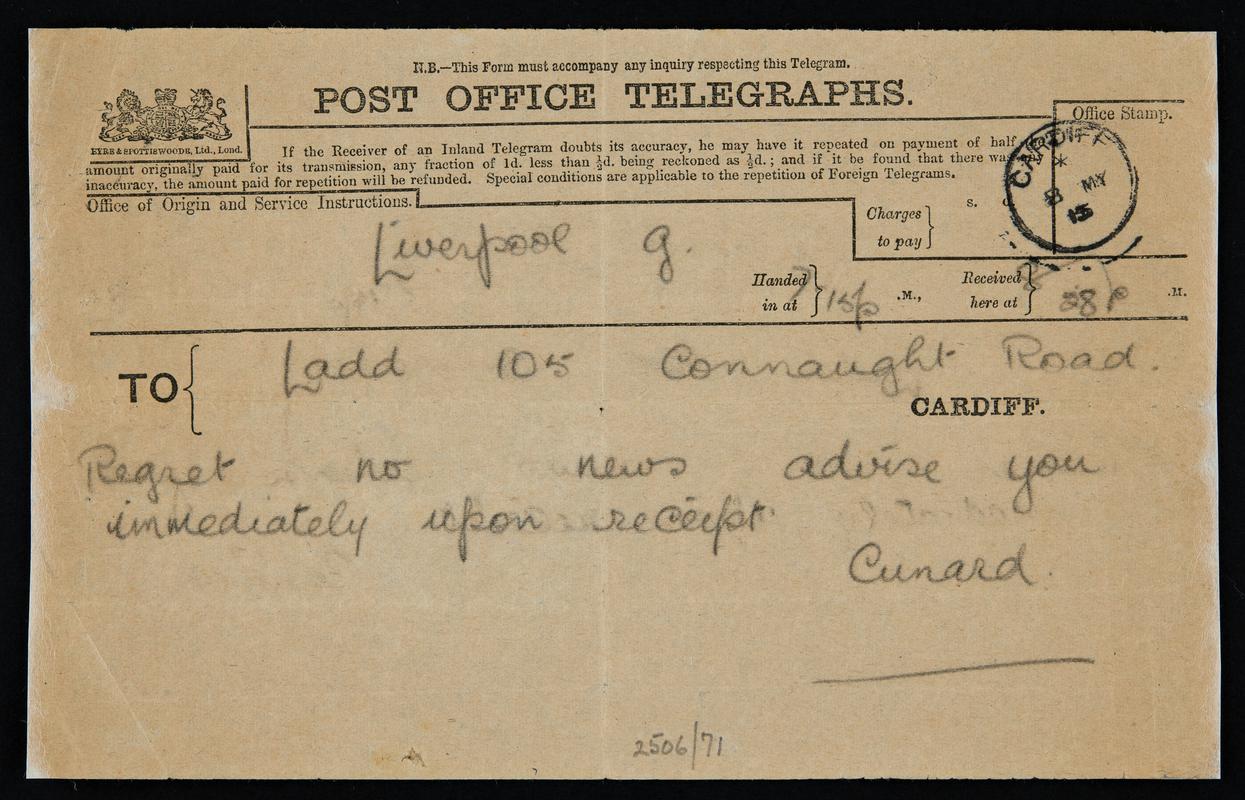 N.B.—This Form must accompany any inquiry respecting this Telegram.
POST OFFICE TELEGRAPHS.
Office Stamp.
EYRE & SPOTTISWOODE, Ltd., Lond.
If the Receiver of an Inland Telegram doubts its accuracy, he may have it repeated on payment of half
amount originally paid for its transmission, any fraction of 1d. less than ½d. being reckoned as ½d.; and if it be found that there was any
inaccuracy, the amount paid for repetition will be refunded. Special conditions are applicable to the repetition of Foreign Telegrams.
CARDIFF
8 MY
15
Office of Origin and Service Instructions.
Charges to pay
s.
Liverpool G.
Handed in at
15 p .M.,
Received here at
28 P .M.
TO
Ladd 105 Connaught Road.
CARDIFF.
Regret no news advise you
immediately upon receipt
Cunard.
2506/71